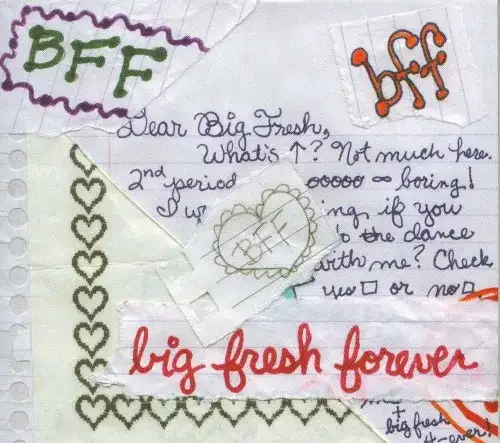 BFF
bff
Dear Big Fresh,
What's ↑? Not much here.
2nd period ooooo ∞ boring!
I ing, if you
the dance
with me? Check
yes □ or no □.
BFF
big fresh forever
+
big fresh
4-ever!